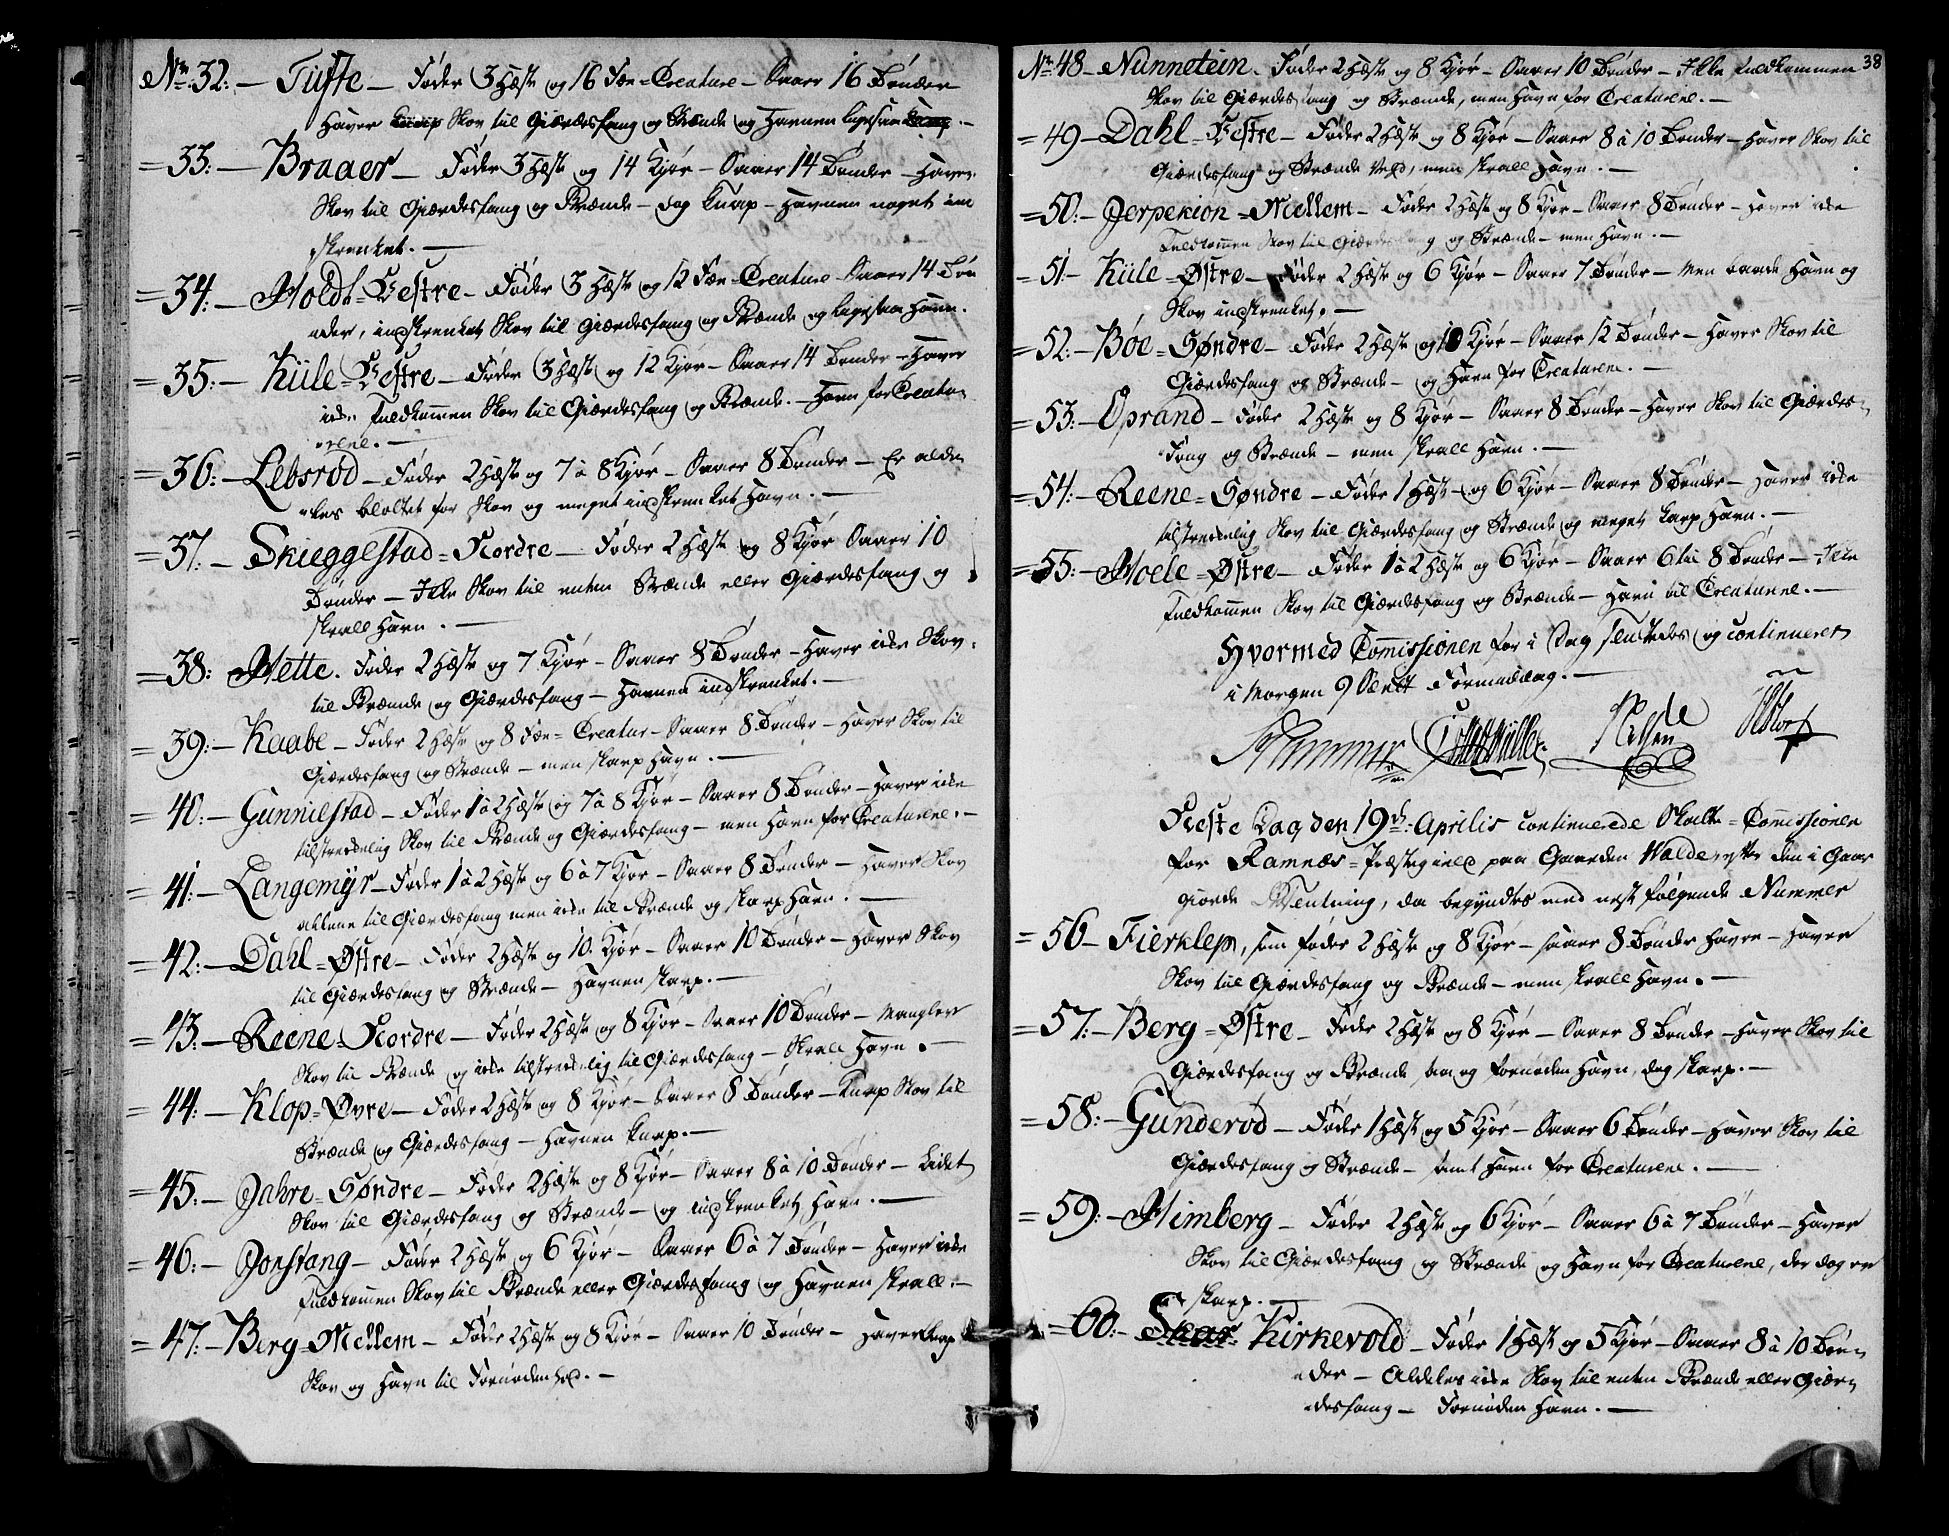 No 32: — Tufte — Føder 3 Hæste og 16 Fæ-Creature — Saaer 16 Tønder
Haver Skov til Giærdesfang og Brænde og Havnen ligesaa
= 33: — Braaer — Føder 3 Hæste og 14 Kjør — Saaer 14 Tønder — Haver
Skov til Giærdesfang og Brænde — dog knap — Havnen noget ind
skrenket. —
= 34: — Holdt = Vestre — Føder 3 Hæste og 12 Fæ-Creature — Saaer 14 Tøn
der, indskrenket Skov til Giærdesfang og Brænde og ligesaa Havn.
= 35: — Kiile = Vestre — Føder 3 Hæste og 12 Kjør — Saaer 14 Tønder — Haver
ikke fuldkommen Skov til Giærdesfang og Brænde. — Havn for Creatu-
rene. —
= 36: — Lebsrød — Føder 2 Hæste og 7 a 8 Kjør — Saaer 8 Tønder — Er alde-
les blottet for Skov og meget indskrenket Havn. —
= 37. — Skieggestad = Nordre — Føder 2 Hæste og 8 Kjør Saaer 10
Tønder — Ikke Skov til enten Brænde eller Giærdesfang og
skrall Havn. —
= 38: Hette. Føder 2 Hæste og 7 Kjør — Saaer 8 Tønder — Haver ikke Skov
til Brænde og Giærdesfang — Havnen indskrenket. —
= 39: — Kaabe — Føder 2 Hæste og 8 Fæ-Creatur — Saaer 8 Tønder — Haver Skov til
Giærdesfang og Brænde — men skarp Havn. —
= 40. — Gunnilstad — Føder 1 a 2 Hæste og 7 a 8 Kjør — Saaer 8 Tønder — Haver ikke
tilstrækkelig Skov til Brænde og Giærdesfang — men Havn for Creaturene. —
= 41: — Langemÿr — Føder 1 a 2 Hæste og 6 a 7 Kjør — Saaer 8 Tønder — Haver Skov
allene til Giærdesfang men ikke til Brænde og skarp Havn. —
= 42: — Dahl = Østre — Føder 2 Hæste og 10 Kjør — Saaer 10 Tønder — Haver Skov
til Giærdesfang og Brænde — Havnen skarp. —
= 43. — Reene = Nordre — Føder 2 Hæste og 8 Kjør — Saaer 10 Tønder — Mangler
Skov til Brænde og ikke tilstrækkelig til Giærdesfang — Skrall Havn. —
= 44: — Klop = Øvre — Føder 2 Hæste og 8 Kjør — Saaer 8 Tønder — Knap Skov til
Brænde og Giærdesfang — Havnen knap. —
= 45: — Jahre = Søndre — Føder 2 Hæste og 8 Kjør — Saaer 8 a 10 Tønder — Lidet
Skov til Giærdesfang og Brænde — og indskrenket Havn. —
= 46: — Jorstang — Føder 2 Hæste og 6 Kjør — Saaer 6 a 7 Tønder — Haver ikke
fuldkommen Skov til Brænde eller Giærdesfang og Havnen skrall. —
= 47: — Berg = Mellem — Føder 2 Hæste og 8 Kjør — Saaer 10 Tønder — Haver knap
Skov og Havn til Fornødenhed. —
38
No 48 — Nunnetein. Føder 2 Hæste og 8 Kjør — Saaer 10 Tønder — Ikke fuldkommen
Skov til Giærdesfang og Brænde, men Havn for Creaturene. —
= 49 — Dahl = Vestre — Føder 2 Hæste og 8 Kjør — Saaer 8 a 10 Tønder — Haver Skov til
Giærdesfang og Brænde Ved, men skrall Havn. —
= 50: — Jerpekion = Mellem — Føder 2 Hæste og 8 Kjør — Saaer 8 Tønder — Haver ikke
fuldkommen Skov til Giærdesfang og Brænde — men Havn. —
= 51 — Kiile = Østre — Føder 2 Hæste og 6 Kjør — Saaer 7 Tønder — Men baade Havn og
Skov indskrenket. —
= 52: — Bøe = Søndre — Føder 2 Hæste og 10 Kjør — Saaer 12 Tønder — Haver Skov til
Giærdesfang og Brænde — og Havn for Creaturene. —
= 53: — Oprand — Føder 2 Hæste og 8 Kjør — Saaer 8 Tønder — Haver Skov til Giærdes-
Fang og Brænde — men skrall Havn. —
= 54: — Reene = Søndre — Føder 1 Hæst og 6 Kjør — Saaer 8 Tønder — Haver ikke
tilstrækkelig Skov til Giærdesfang og Brænde og meget knap Havn. —
= 55: — Hoele = Østre — Føder 1 a 2 Hæste og 6 Kjør — Saaer 6 til 8 Tønder — Ikke
fuldkommen Skov til Giærdesfang og Brænde — Havn til Creaturene. —
Hvormed Commissionen for i Dag sluttedes og continueret
i Morgen 9 Slett Formiddag. —
Neste Dag den 19de Aprilis continuerede Skatte-Commissionen
for Ramnæs = Præstegield paa Gaarden Wolde, efter den i Gaar
giorde Udsendtning, da begyndtes med nest følgende Nummer
= 56 — Fierklep, som føder 2 Hæste og 8 Kjør — saaer 8 Tønder Havre — Haver
Skov til Giærdesfang og Brænde — men skrall Havn. —
= 57: — Berg = Østre — Føder 2 Hæste og 8 Kjør — Saaer 8 Tønder — Haver Skov til
Giærdesfang og Brænde, saa og fornøden Havn, dog skarp. —
= 58: — Gunderød — Føder 1 Hæst og 5 Kjør — Saaer 6 Tønder — Haver Skov til
Giærdesfang og Brænde — samt Havn for Creaturene. —
= 59: — Himberg — Føder 2 Hæste og 6 Kjør — Saaer 6 a 7 Tønder — Haver
Skov til Giærdesfang og Brænde og Havn for Creaturene, der dog er
skarp. —
= 60: — Skar Kirkevold — Føder 1 Hæst og 5 Kjør — Saaer 8 a 10 Tøn-
der — Aldeles ikke Skov til enten Brænde eller Giær-
desfang — Fornøden Havn. —